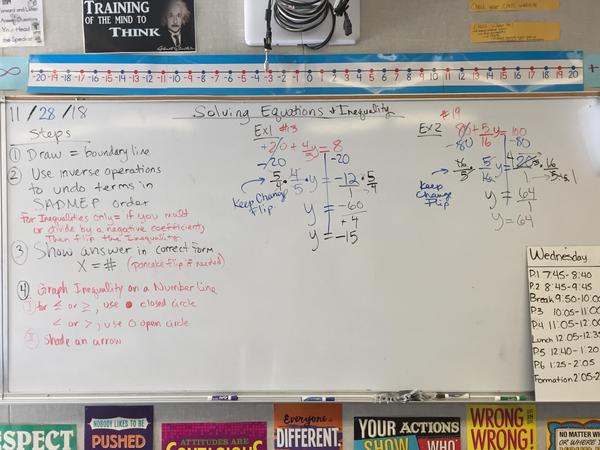 TRAINING
OF THE MIND TO
THINK
-20 -19 -18 -17 -16 -15 -14 -13 -12 -11 -10 -9 -8 -7 -6 -5 -4 -3 -2 -1 0 1 2 3 4 5 6 7 8 9 10 11 12 13 14 15 16 17 18 19 20
11/28/18
Solving Equations & Inequality
Steps
① Draw = boundary line
② Use inverse operations
to undo terms in
SADMEP order
For Inequalities only = if you must
or divide by a negative coefficients
Then flip the Inequality
③ Show answer in correct form
X = # (pancake flip if needed)
④ Graph Inequality on a Number Line
① for ≤ or ≥, use ● closed circle
< or >, use O open circle
② Shade an arrow
Ex1 #13
+20 + 4/5 y = 8
-20 -20
5/4 • 4/5 • y = -12 • 5/4
Keep Change
Flip
y = -60/+4
y = -15
Ex2 #19
80 + 5/16 y = 100
-80 -80
16/5 • 5/16 y = 20 • 16/5
Keep
Change
Flip
y = 64/1
y = 64
Wednesday
P.1 7:45-8:40
P.2 8:45-9:45
Break 9:50-10:00
P.3 10:05-11:00
P.4 11:05-12:00
Lunch 12:05-12:35
P.5 12:40-1:20
P.6 1:25-2:05
Formation 2:05-2
NOBODY LIKES TO BE
PUSHED
ATTITUDES ARE
CONTAGIOUS
Everyone is
DIFFERENT.
YOUR ACTIONS
SHOW WHO
WRONG
WRONG!
NO MATTER WH
OR WHERE Y